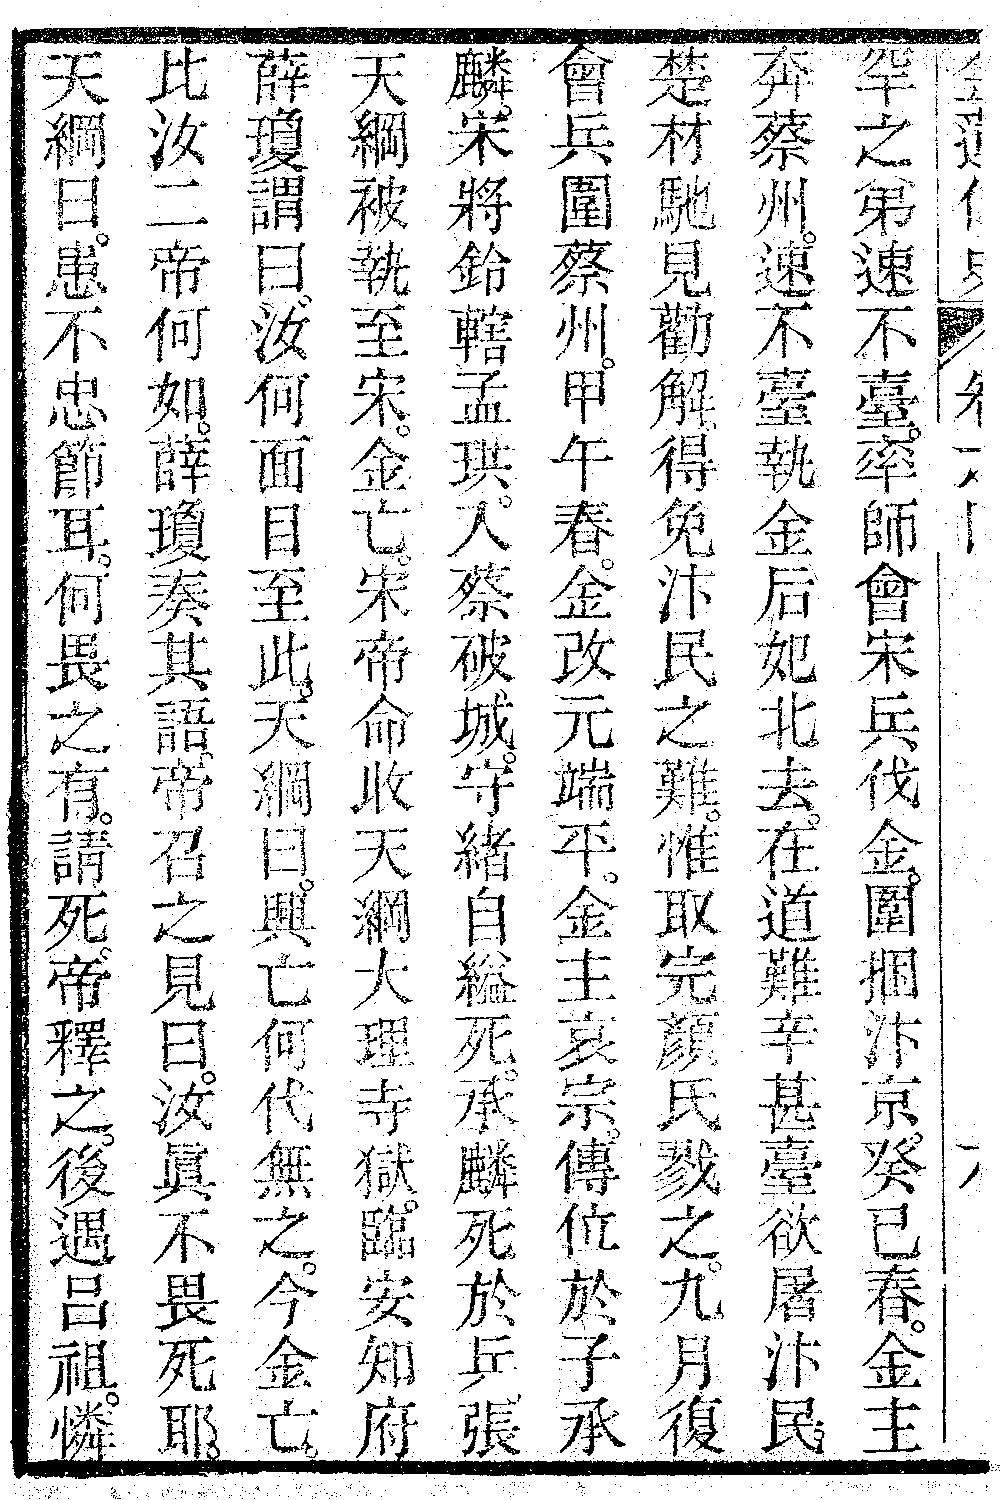 罕之弟速不臺。率師會宋兵伐金。圍捆汴京。癸巳春。金主
奔蔡州。速不臺執金后妃北去。在道難辛甚臺欲屠汴民。
楚材馳見勸解。得免汴民之難。惟取完顏氏戮之。九月復
會兵圍蔡州。甲午春。金改元端平。金主哀宗。傳位於子承
麟。宋將鈐轄孟珙。入蔡破城。守緒自縊死。承麟死於乒張
天綱被執至宋。金亡。宋帝命收天綱大理寺獄。臨安知府
薛瓊謂曰。汝何面目至此。天綱曰。興亡何代無之。今金亡。
比汝二帝何如。薛瓊奏其語。帝召之見曰。汝眞不畏死耶。
天綱曰。患不忠節耳。何畏之有。請死。帝釋之。後遇呂祖。憐